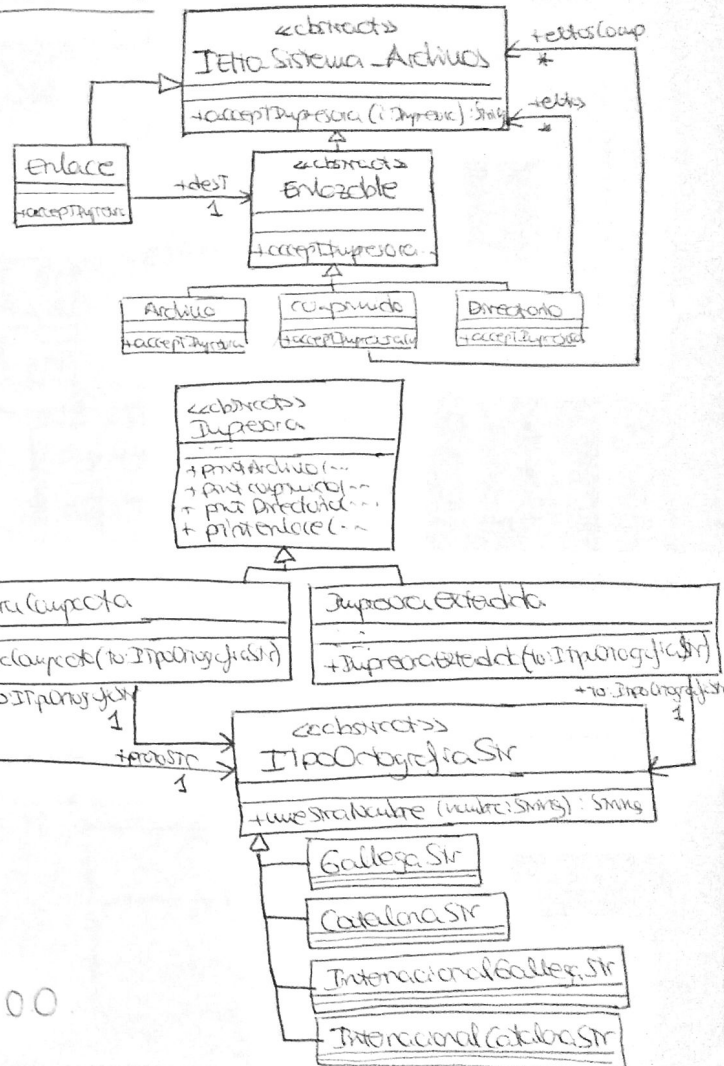 <<abstract>>
IEltoSistema_Archivos
+acceptImpresora (i:Impresora): String
+eltosComp
*
+eltos
*
Enlace
+acceptImpresora
+dest
1
<<abstract>>
Enlazable
+acceptImpresora...
Archivo
+acceptImpresora
Comprimido
+acceptImpresora
Directorio
+acceptImpresora
<<abstract>>
Impresora
+ printArchivo(...
+ printComprimido(...
+ printDirectorio(...
+ printEnlace(...
raCompacta
aCompacta(to:ITipoOrtografiaStr)
ImpresoraExtendida
+ImpresoraExtendida(to:ITipoOrtografiaStr)
o:ITipoOrtografiaStr
1
+to:ITipoOrtografiaStr
1
1
<<abstract>>
ITipoOrtografiaStr
+muestraNombre (nombre:String): String
GallegaStr
CatalanaStr
InternacionalGallegaStr
InternacionalCatalanaStr
00